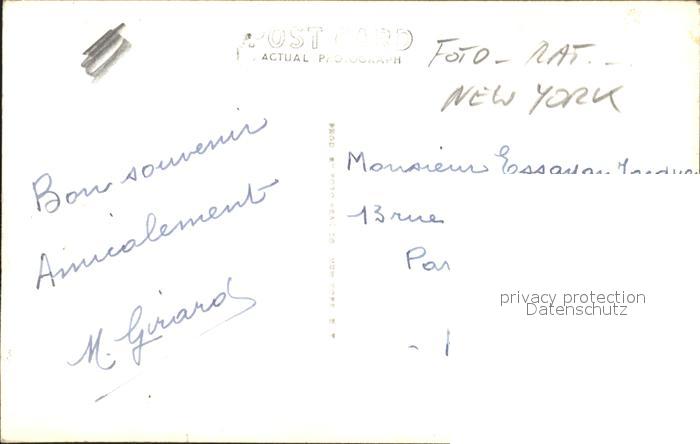 POST CARD
ACTUAL PHOTOGRAPH
FOTO - RAT. -
NEW YORK
Bon souvenir
Amicalement
M. Girard
Monsieur Essayan
13 rue
Par
- 1
privacy protection
Datenschutz